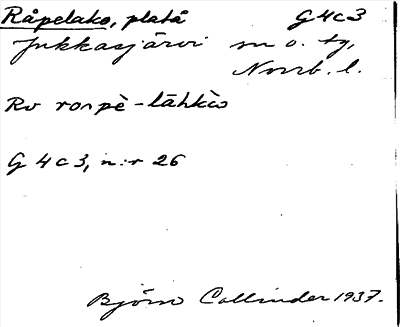 Råpelako, platå G4c3
Jukkasjärvi sn o. tg,
Norrb. l.
Rv ronpè-lähkòs
G 4 c 3, n:r 26
Björn Collinder 1937.